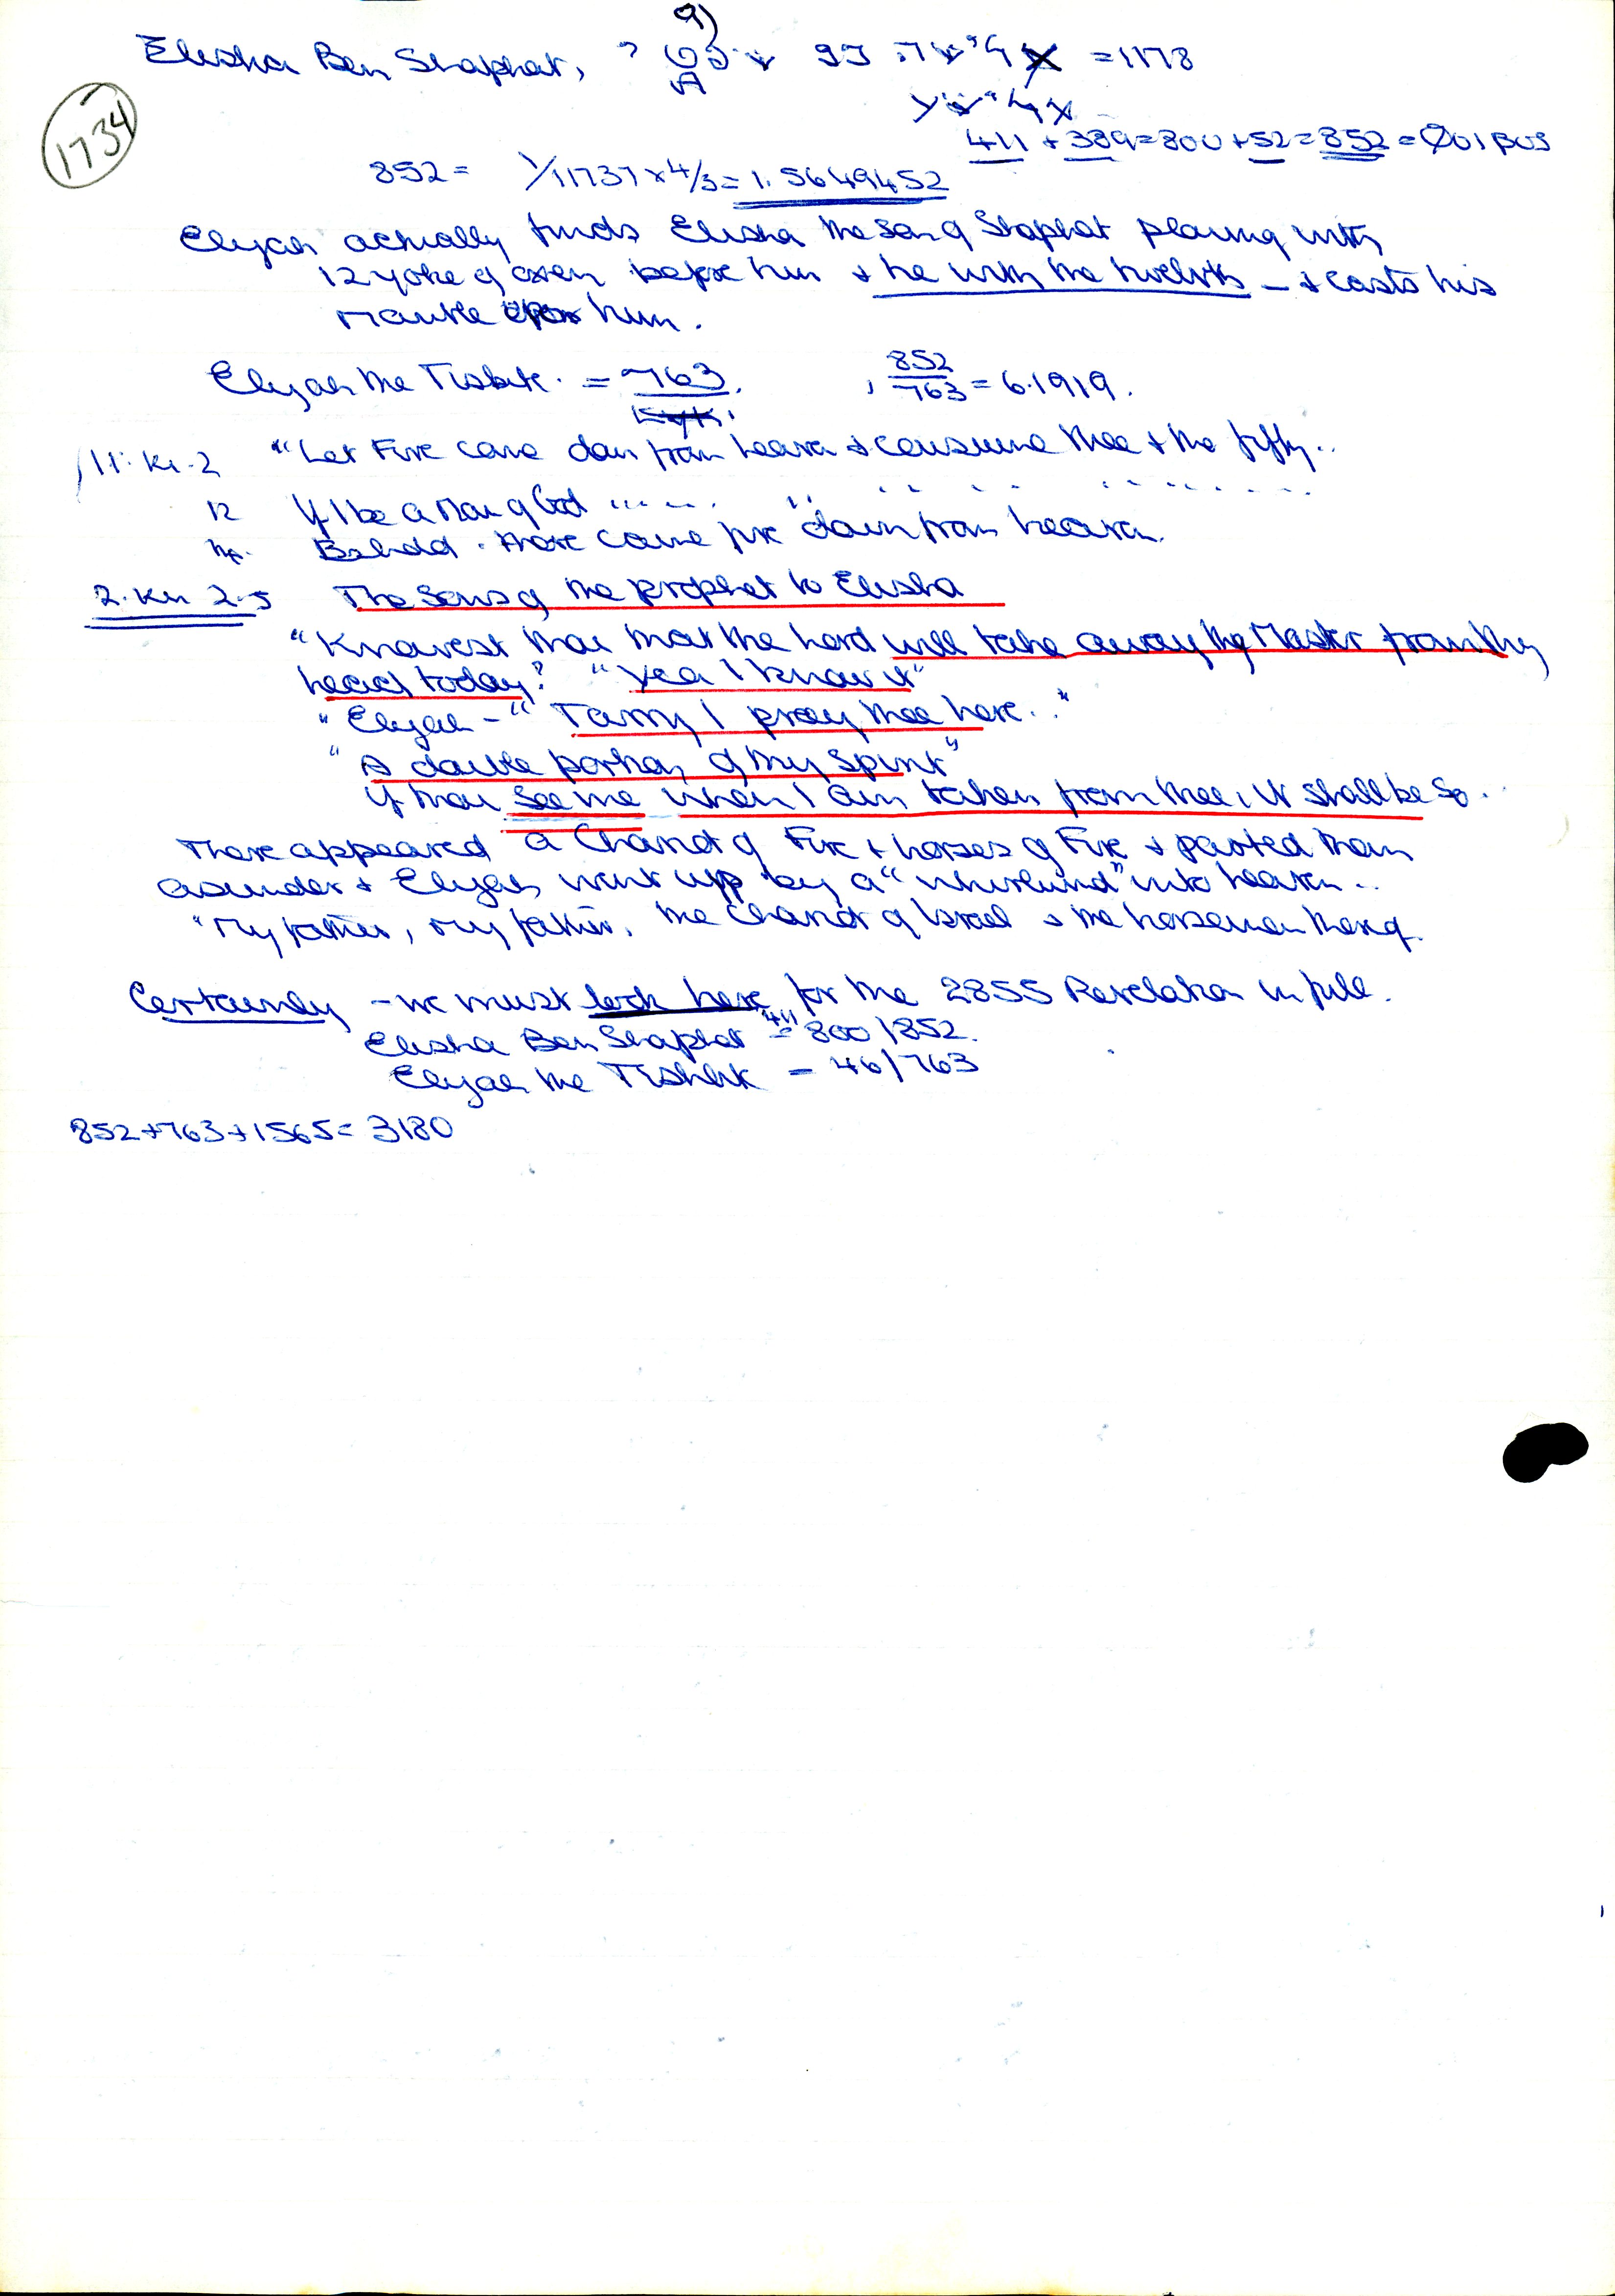 9)
Elisha Ben Shaphat, ? = 1178
1734
411 + 389 = 800 + 52 = 852 =
852 = 1/11737 x 4/3 = 1.5649452
Elijah actually finds Elisha the son of Shaphat plowing with
12 yoke of oxen before him + he with the twelvth - + casts his
mantle upon him.
Elijah the Tisbite. = 763. , 852/763 = 6.1919.
11. Ki. 2 "Let Fire come down from heaven & consume thee + the fifty..
12 If I be a Man of God ......
14. Behold. There came fire down from heaven.
2. Kn 2.5 The Sons of the prophet to Elisha
"Knowest thou that the Lord will take away thy Master from thy
head today? "Yea I know it"
"Elijah - "Tarry I pray thee here.."
"A double portion of thy Spirit"
if thou see me when I am taken from thee, it shall be so..
There appeared a Chariot of Fire + horses of Fire + parted them
asunder + Elijah went up by a "whirlwind" into heaven..
"My father, my father, the chariot of Israel & the horsemen thereof.
Certainly - we must look here for the 2855 Revelation in full.
Elisha Ben Shaphat 411 = 800 / 852.
Elijah the Tishbite - 46/763
852+763+1565= 3180